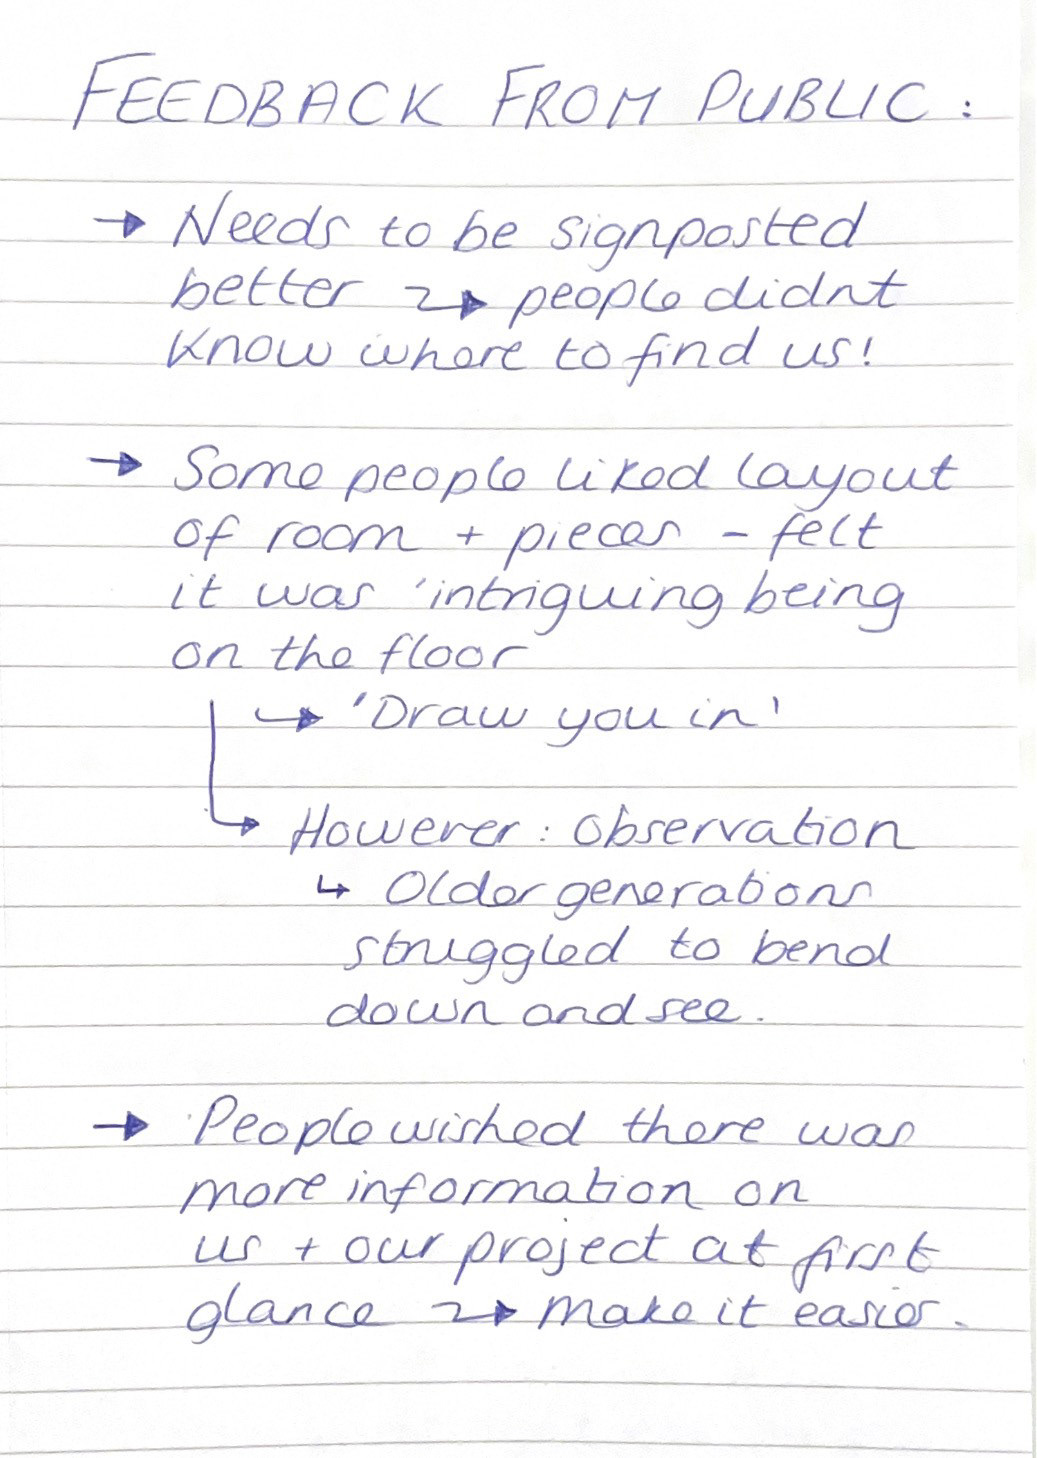 FEEDBACK FROM PUBLIC :
→ Needs to be signposted
better → people didnt
know where to find us!
→ Some people liked layout
of room + pieces - felt
it was 'intriguing being
on the floor
↳ 'Draw you in'
↳ However : Observation
↳ Older generations
struggled to bend
down and see.
→ People wished there was
more information on
us + our project at first
glance → make it easier.